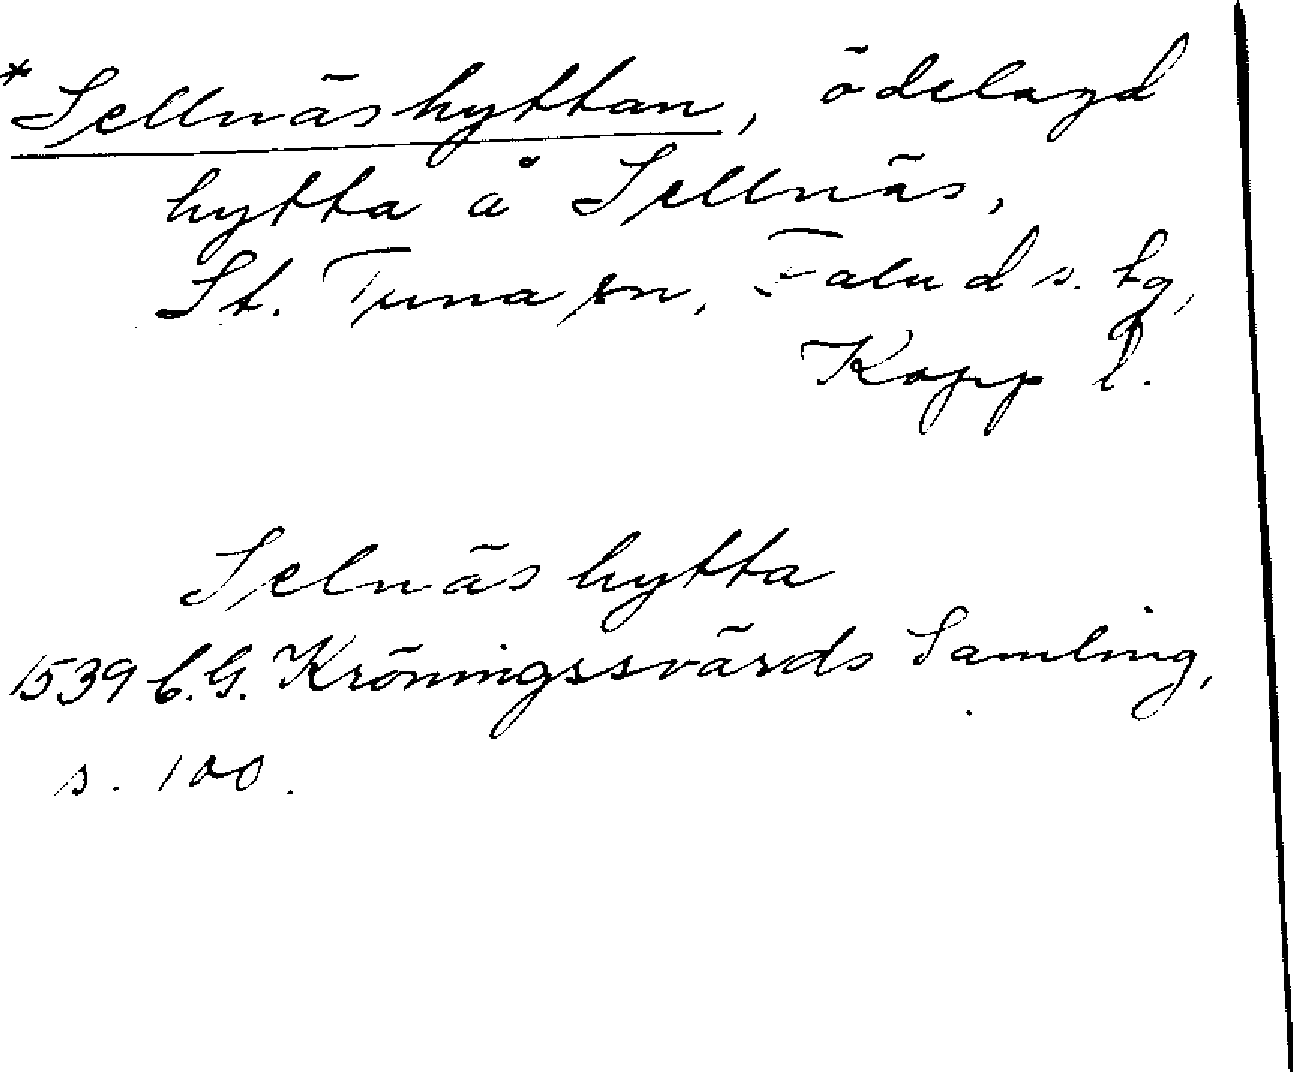 *Sellnäshyttan, ödelagd
hytta å Sellnäs,
St. Tuna sn, Falu d s. tg,
Kopp l.
Selnäs hytta
1539 C.G. Kröningssvärds Samling,
s. 100.